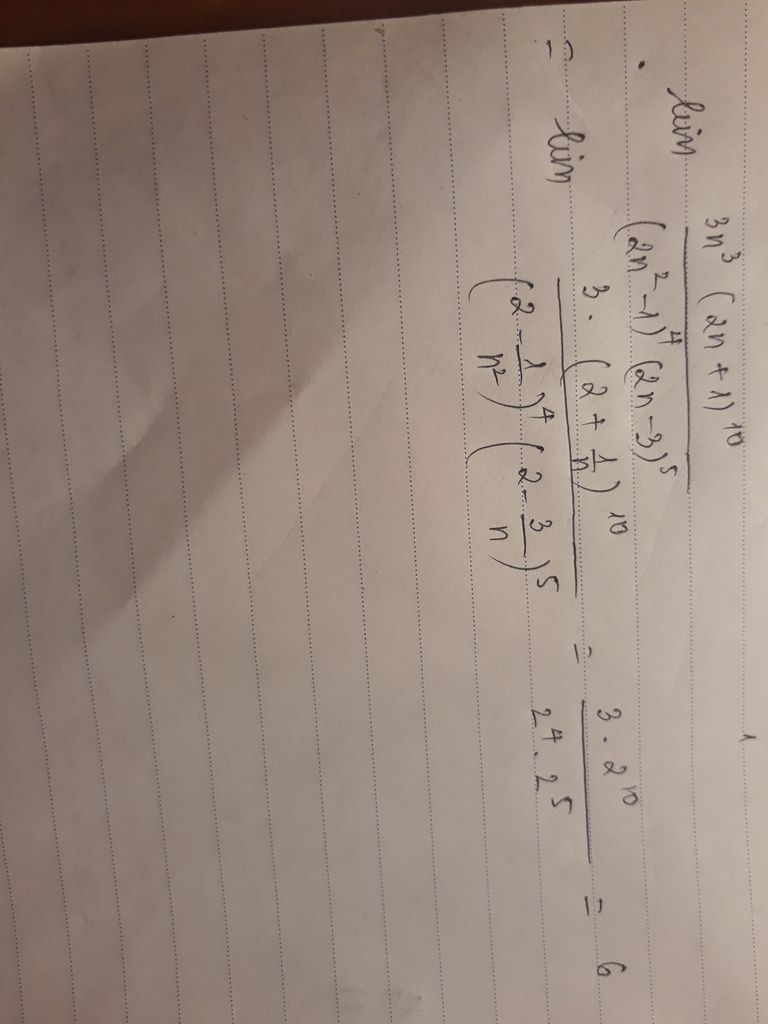 • lim 3n³ (2n + 1)¹⁰ / (2n² - 1)⁴ (2n - 3)⁵
= lim 3 . (2 + 1/n)¹⁰ / (2 - 1/n²)⁴ (2 - 3/n)⁵ = 3 . 2¹⁰ / 2⁴ . 2⁵ = 6